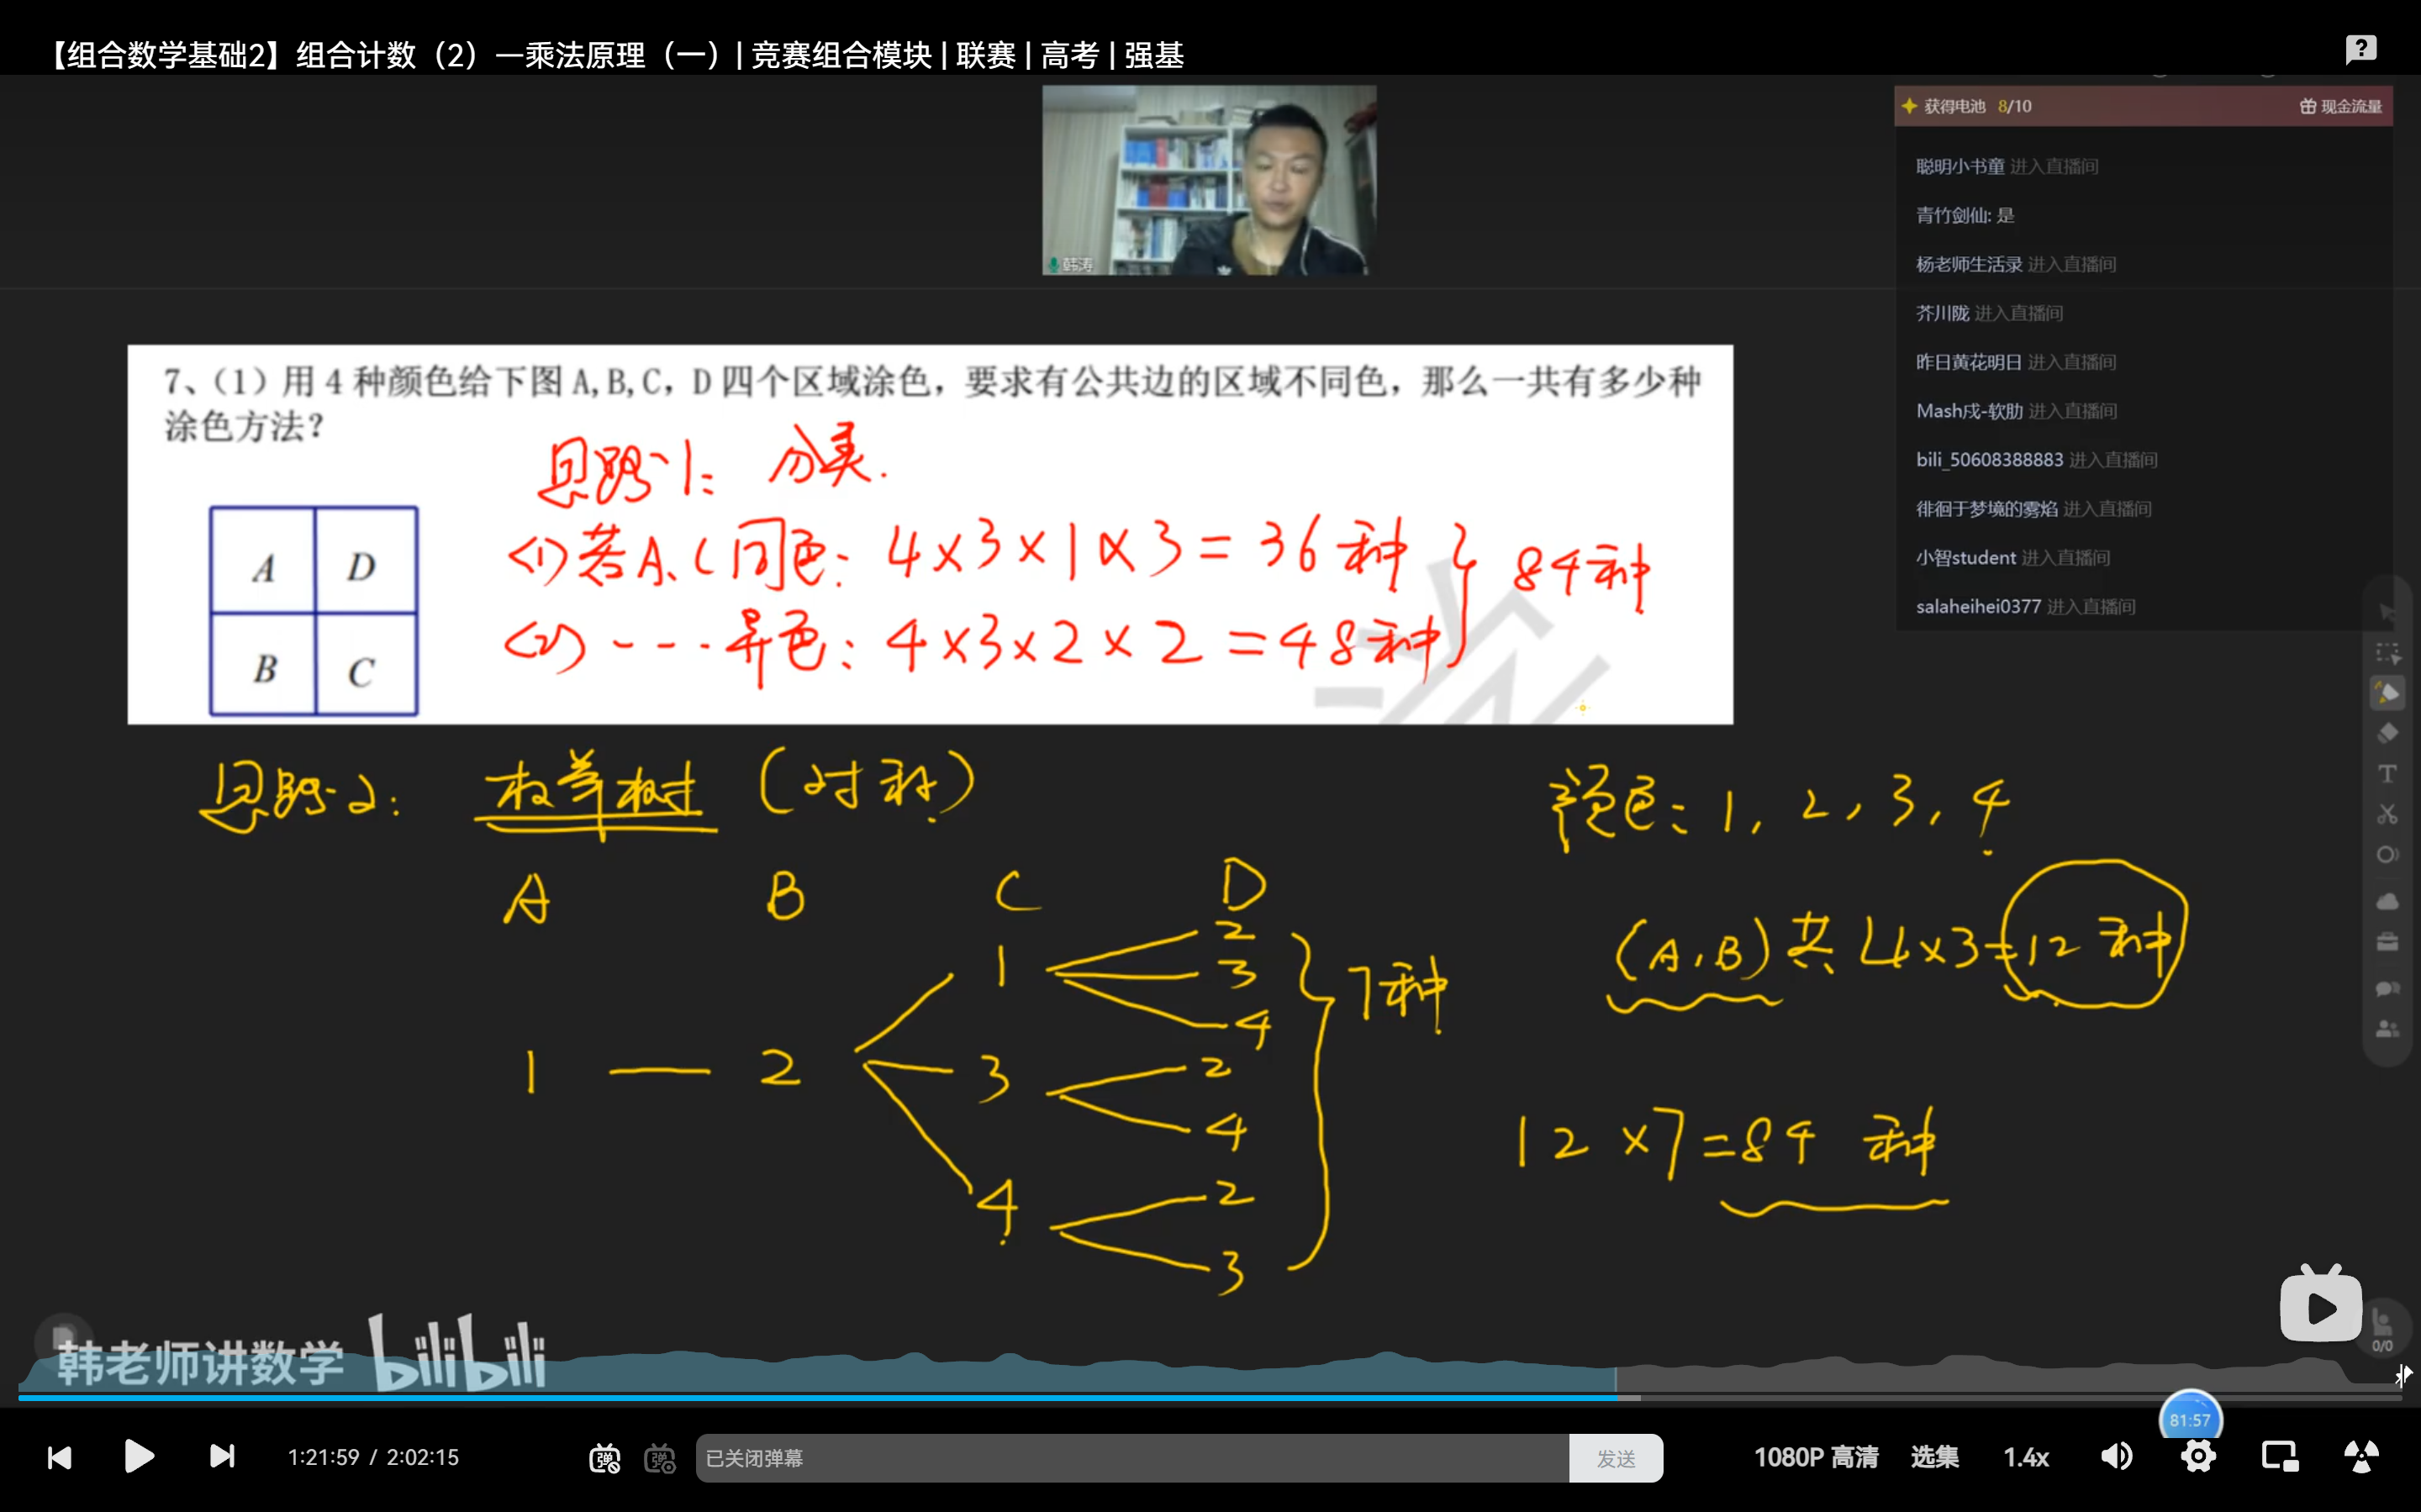 【组合数学基础2】组合计数（2）—乘法原理（一）| 竞赛组合模块 | 联赛 | 高考 | 强基
韩涛
获得电池 8/10 现金流量
聪明小书童 进入直播间
青竹剑仙: 是
杨老师生活录 进入直播间
芥川陇 进入直播间
昨日黄花明日 进入直播间
Mash戌-软肋 进入直播间
bili_50608388883 进入直播间
徘徊于梦境的雾焰 进入直播间
小智student 进入直播间
salaheihei0377 进入直播间
7、（1）用 4 种颜色给下图 A,B,C，D 四个区域涂色，要求有公共边的区域不同色，那么一共有多少种
涂色方法？
A D
B C
思路1: 分类.
<1>若A、C同色: 4×3×1×3=36种
<2>---异色: 4×3×2×2=48种
84种
思路2: 枚举树 (对称)
颜色: 1, 2, 3, 4
A B C D
1 — 2
1 2 3 4
3 2 4
4 2 3
7种
(A,B)共4×3=12种
12×7=84种
韩老师讲数学 bilibili
0/0
81:57
1:21:59 / 2:02:15
弹 弹
已关闭弹幕
发送
1080P 高清 选集 1.4x